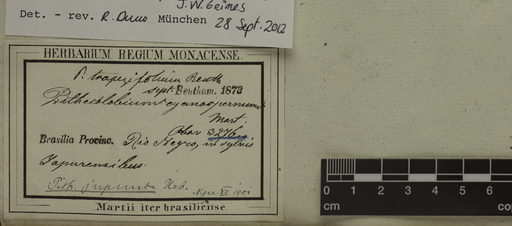 J.W. Grimes
Det. - rev. R. Duno München 28 Sept. 2012
HERBARIUM REGIUM MONACENSE.
P. trapezifolium Benth
sept. Bentham. 1873
Pithecolobium cyanospermum
Mart.
Obs. 3276.
Brasilia Provinc. Rio Negro, in sylvis
Japurensibus
Pith. Jupunba Urb.
Martii iter brasiliense.
0 1 2 3 4
cm